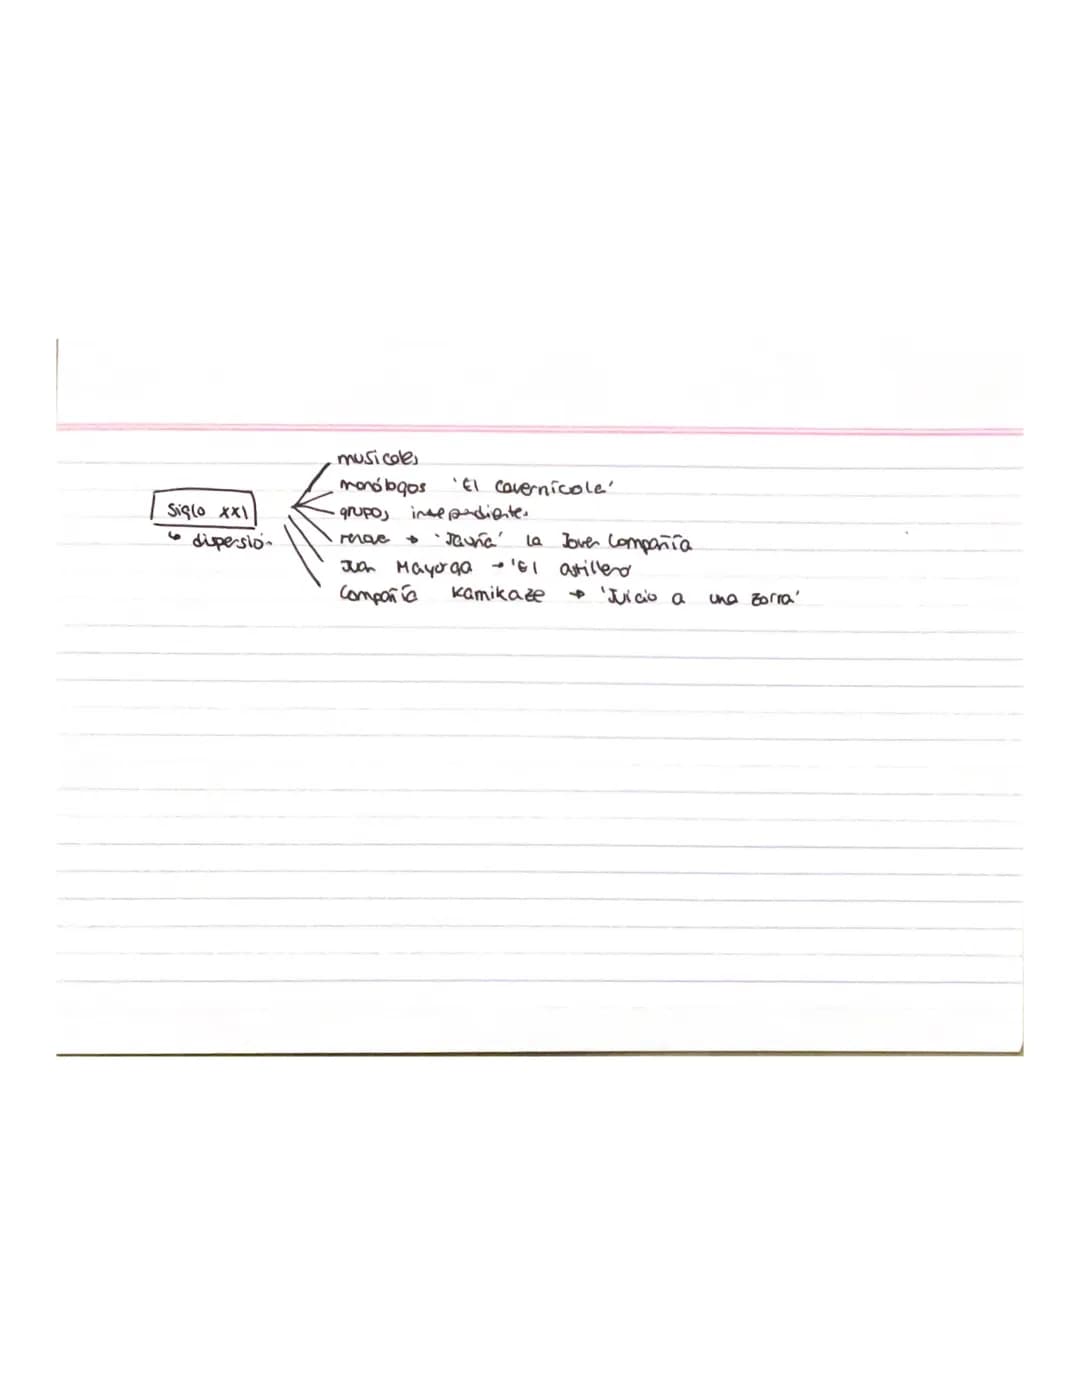 musicales
monólogos 'El cavernícola'
Siglo XXI
grupos independientes
↳ dispersión
→ 'Jauría' La Joven Compañía
Juan Mayorga → 'El astillero
Compañía Kamikaze → 'Juicio a una zorra'